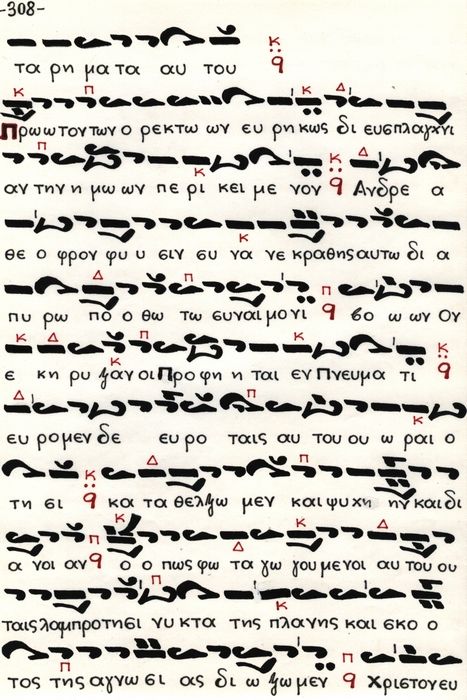 -308-
τα ρη μα τα αυ του
Πρωωτοντων ο ρεκτω ων ευ ρη κως δι ευσπλαγχνι
αν την η μω ων πε ρι κει με νον Ανδρε α
θε ο φρον φυ υ σιν συ να νε κραθης αυτω δι α
πυ ρω πο ο θω τω συναιμο νι βο ω ων Ον
ε κη ρυ ξαν οι Προ φη η ται εν Πνευμα τι
ευ ρο μεν δε ευ ρο ταις αυ του ου ω ραι ο
τη σι κα τα θελξω μεν και ψυχη ην και δι
α νοι αν ο ο πως φω τα γω γου με νοι αυ του ου
ταις λαμπροτησι νυ κτα της πλανης και σκο ο
τος της αγνω σι ας δι ω ξω μεν Χριστον ευ